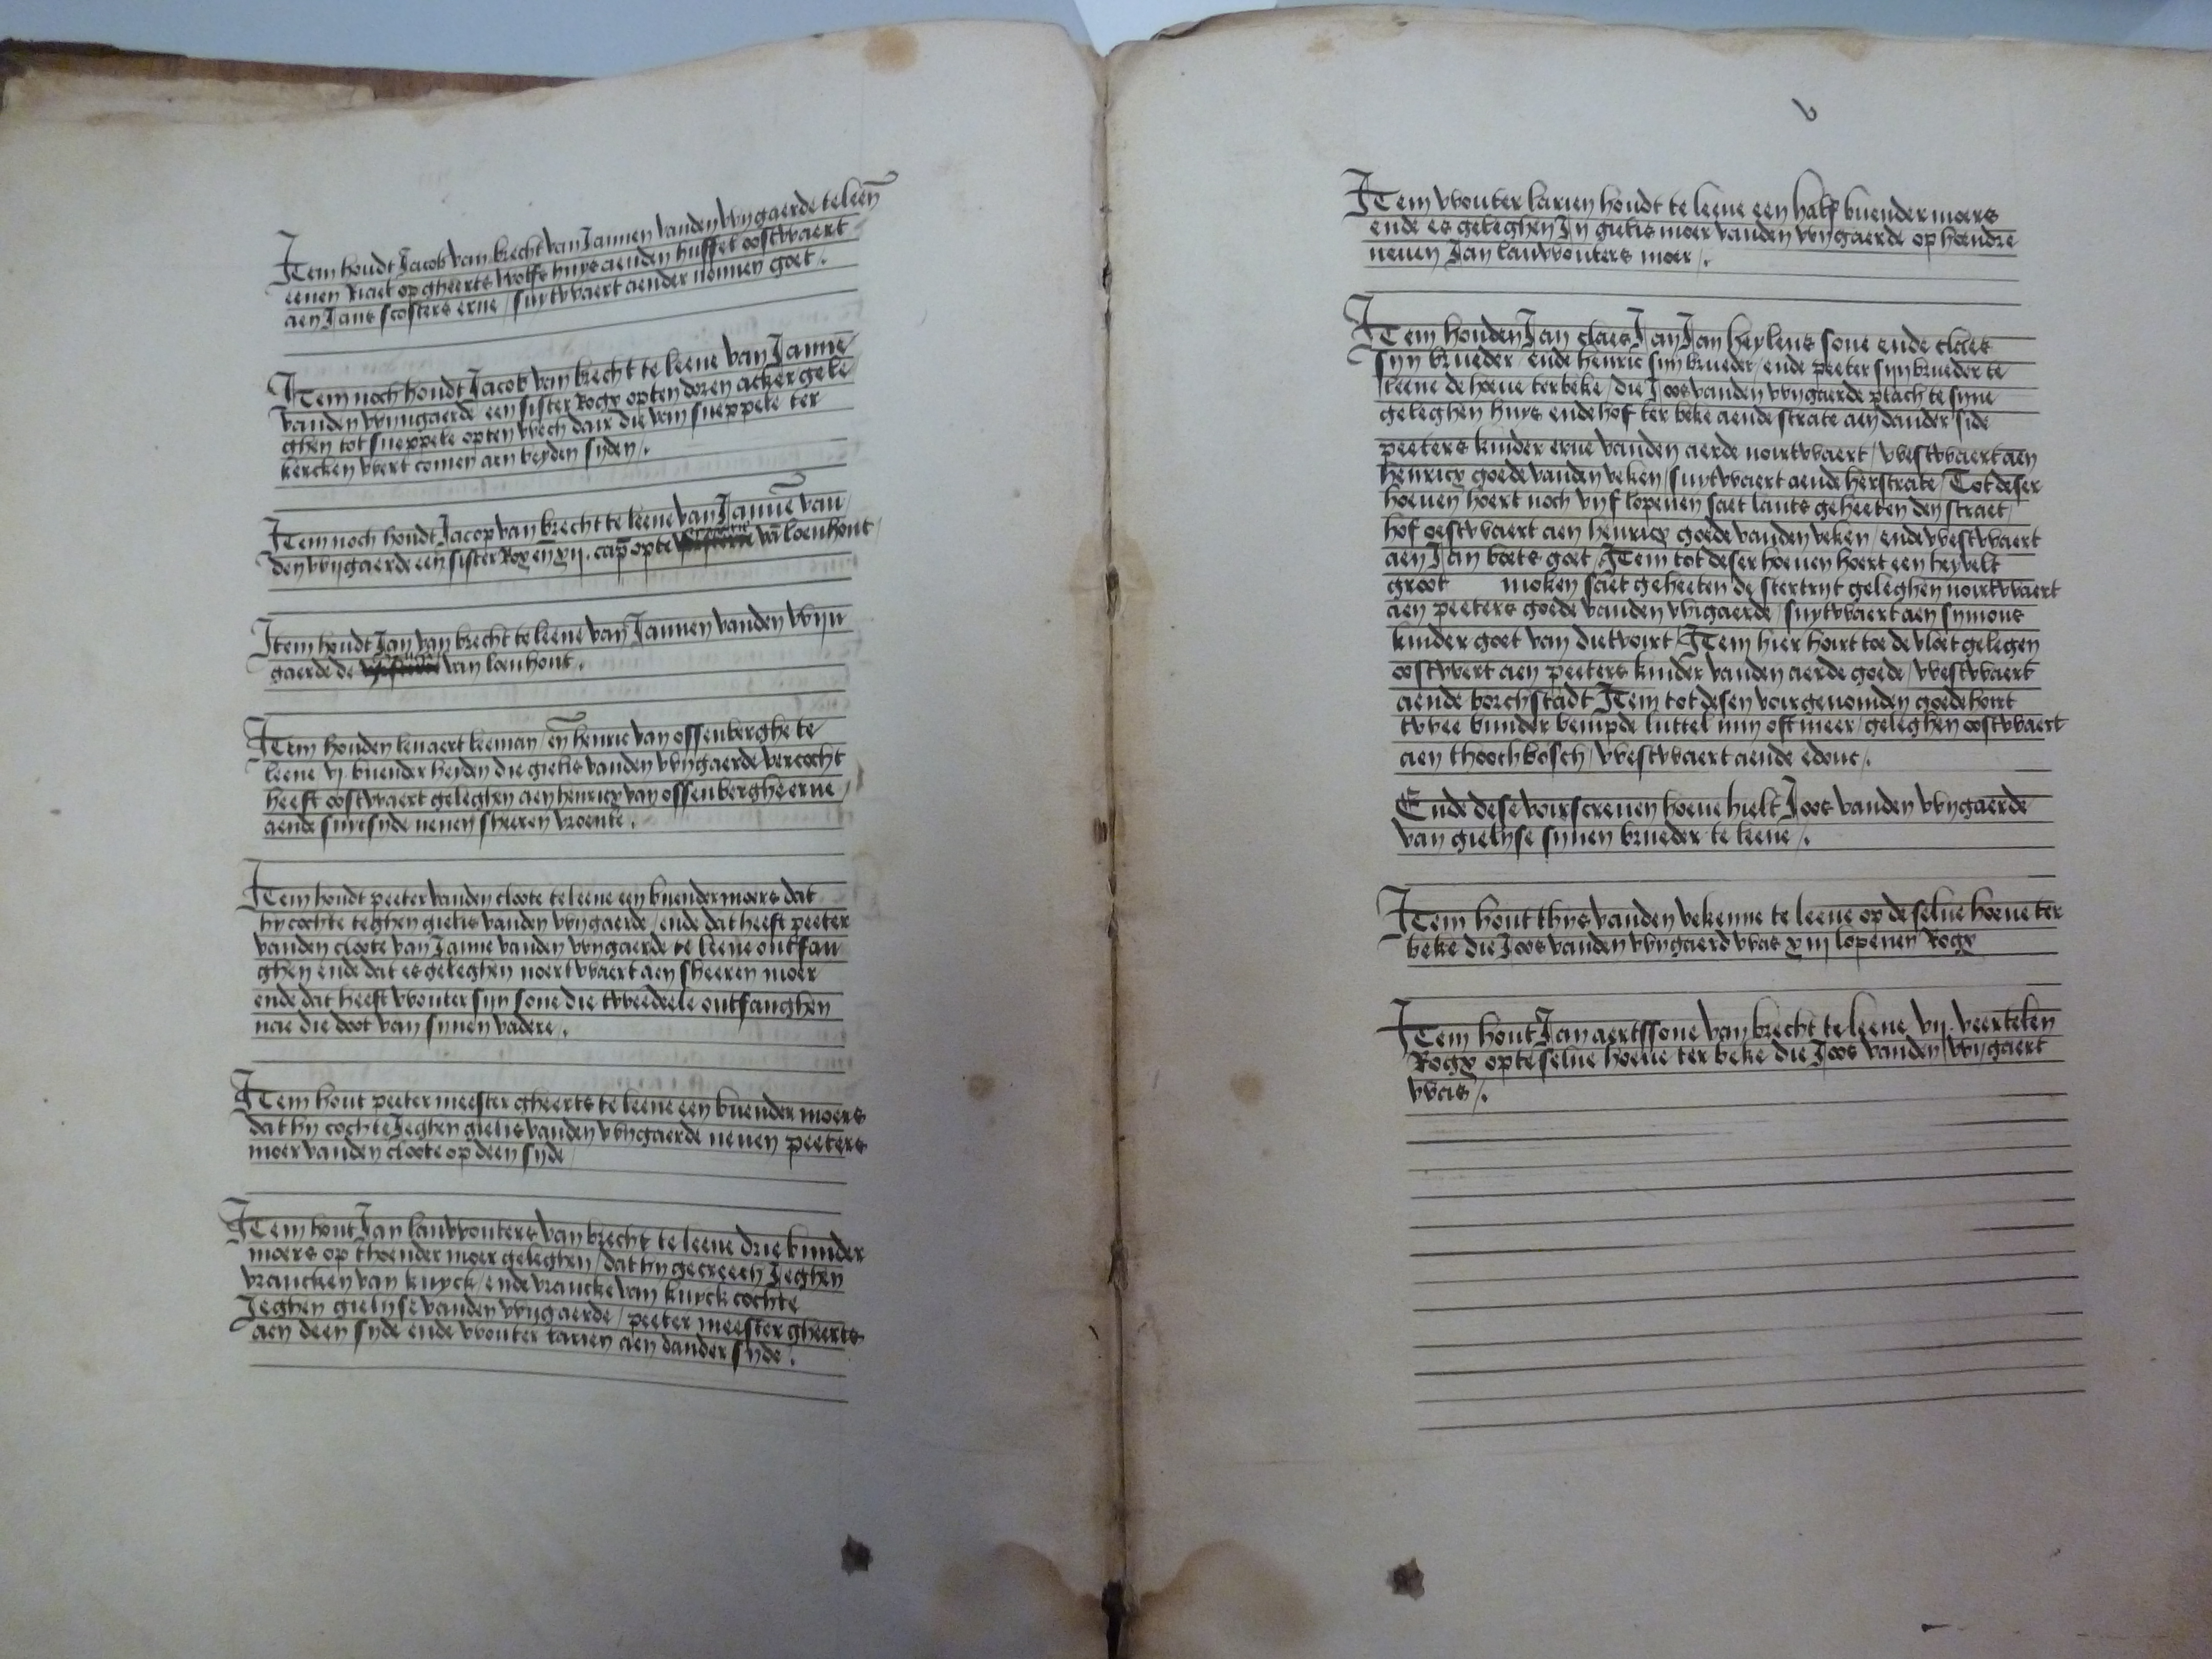 Item houdt Jacob van brecht van Jannen vanden wijngaerde te leen̄
eenen viael op gheerts wolfs huys aenden hussel oostwaert
aen Jans scosters erue / suytwaert aender nonnen goet /.
Item noch houdt Jacob van brecht te leene van Janne
vanden wijngaerde een sister Rogx opten doren acker gele
ghen tot sneppele opten wech dair die van sneppele ter
kercken wert comen aen beyden syden /.
Item noch houdt Jacop van brecht te leene van Jannē van
den wijgaerde een sister Rox en̄ xij. cap̄ opte vā loenhout
Item houdt Jan van brecht te leene van Jannen vanden wijn
gaerde de van loenhout.
Item houden lenaert leeman / en̄ henric van ossenberghe te
leene vj. buender heyden die gielis vanden wijgaerde vercocht
heeft oostwaert geleghen aen henricx van ossenberghe erue /
aende suytsyde neuen sheeren vroente.
Item houdt peeter vanden cloote te leene een buender moers dat
hy cochte teghen gielis vanden wijgaerde / ende dat heeft peeter
vanden cloote van Janne vanden wijgaerde te leene ontfan
ghen ende dat es geleghen noertwaert aen sheeren moer
ende dat heeft wouter sijn sone die tweedeele ontfanghen
nae die doot van synen vadere.
Item hout peeter meester gheerts te leene een buender moers
dat hy cochte Jeghen gielis vanden wijgaerde neuen peeters
moer vanden cloote op deen syde
Item hout Jan lauwouters van brecht te leene drie bunder
moers op thoender moer geleghen / dat hy gecreech Jeghen
vrancken van kuyck / ende vrancke van kuyck cochte
Jeghen gielijse vanden wijgaerde / peeter meester gheerts
aen deen syde ende wouter larien aen dander syde.
v
Item wouter larien houdt te leene een half buender moers
ende es geleghen Jn gielis moer vanden wijgaerde op hoendre
neuen Jan lauwouters moer /.
Item houden Jan claes Jan Jan heylens sone ende claes
sijn brueder / ende henric sijn brueder / ende peeter sijn brueder te
leene de hoeue ter beke / die Joos vanden wijgaerde plach te sijne
geleghen huys ende hof ter beke aende strate aen dander side
peeters kinder erue vanden aerde noirtwaert / westwaert aen
henricx goede vanden veken / suytwaert aende herstrate / Tot deser
hoeuen hoert noch vijf lopenen saet lants geheeten den straet
hof oestwaert aen henricx goede vanden veken / ende westwaert
aen Jan boets goet / Item tot deser hoeuen hoert een heyvelt
groot moken saet geheeten de stertrijt geleghen noirtwaert
aen peeters goede vanden wijgaerde / suytwaert aen symons
kinder goet van dietvoirt / Item hier hoirt toe de vloet gelegen
oostwert aen peeters kinder vanden aerde goede / westwaert
aende borchstadt Item tot desen voirgenoemden goede hoirt
twee bunder bempde luttel min oft meer / geleghen oostwaert
aen thoochbosch / westwaert aende edonc /.
Ende dese voirscreuen hoeue hielt Joos vanden wijgaerde
van gielijse synen brueder te leene /.
Item hout thijs vanden vekenne te leene op de selue hoeue ter
beke die Joos vanden wijgaerd was xiij lopenen Rogx
Item hout Jan aertssone van brecht te leene vij. veertelen
Rogx opte selue hoeue ter beke die Joos vanden wijgaert
was /.